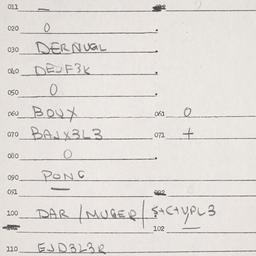 011 —
020 0
030 DERNUGL
040 DEJF3K
050 0
060 BOUX 061 0
070 BAJX3L3 071 +
080 0
090 PONG
091
100 DAR / MUGER / S+C+YPL3
102
110 EJD3L3R